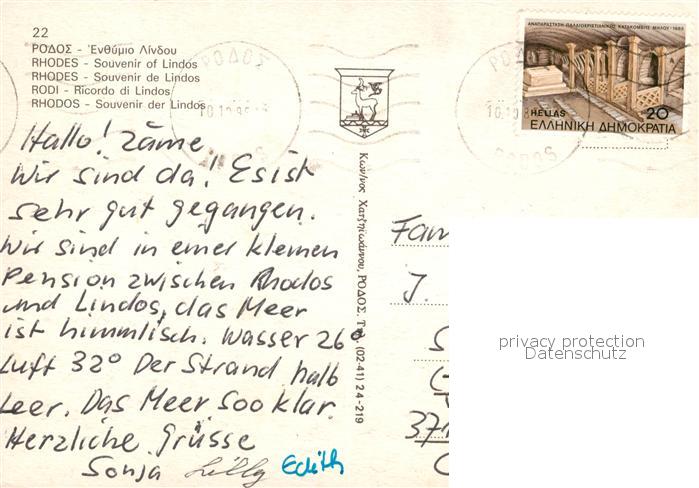 22
ΡΟΔΟΣ - Ἐνθύμιο Λίνδου
RHODES - Souvenir of Lindos
RHODES - Souvenir de Lindos
RODI - Ricordo di Lindos
RHODOS - Souvenir der Lindos
Hallo! Zäme
Wir sind da! Es ist
sehr gut gegangen.
Wir sind in einer kleinen
Pension zwischen Rhodos
und Lindos, das Meer
ist himmlisch. Wasser 26°
Luft 32° Der Strand halb
Leer. Das Meer soo klar.
Herzliche Grüsse
Sonja Lilly Edith
Κων/νος Χατζηϊωάννου, ΡΟΔΟΣ. Τηλ. (02-41) 24-219
ΡΟΔΟΣ
10.10.8
RODOS
ΑΝΑΠΑΡΑΣΤΑΣΗ ΠΑΛΑΙΟΧΡΙΣΤΙΑΝΙΚΗΣ ΚΑΤΑΚΟΜΒΗΣ ΜΗΛΟΥ
HELLAS 20
ΕΛΛΗΝΙΚΗ ΔΗΜΟΚΡΑΤΙΑ
Fam
J.
S
371
privacy protection
Datenschutz